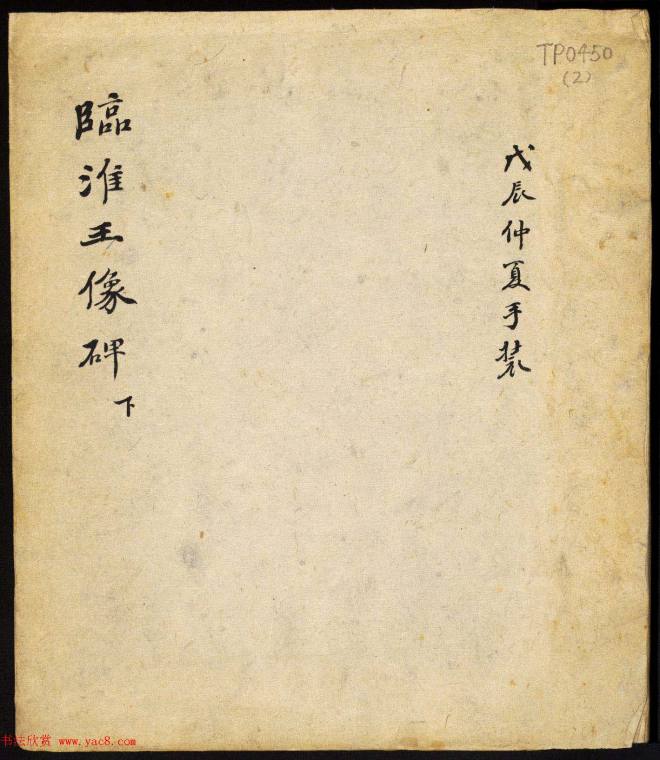 TP0450
(2)
戊辰仲夏手装
臨淮王像碑
下
书法欣赏 www.yac8.com